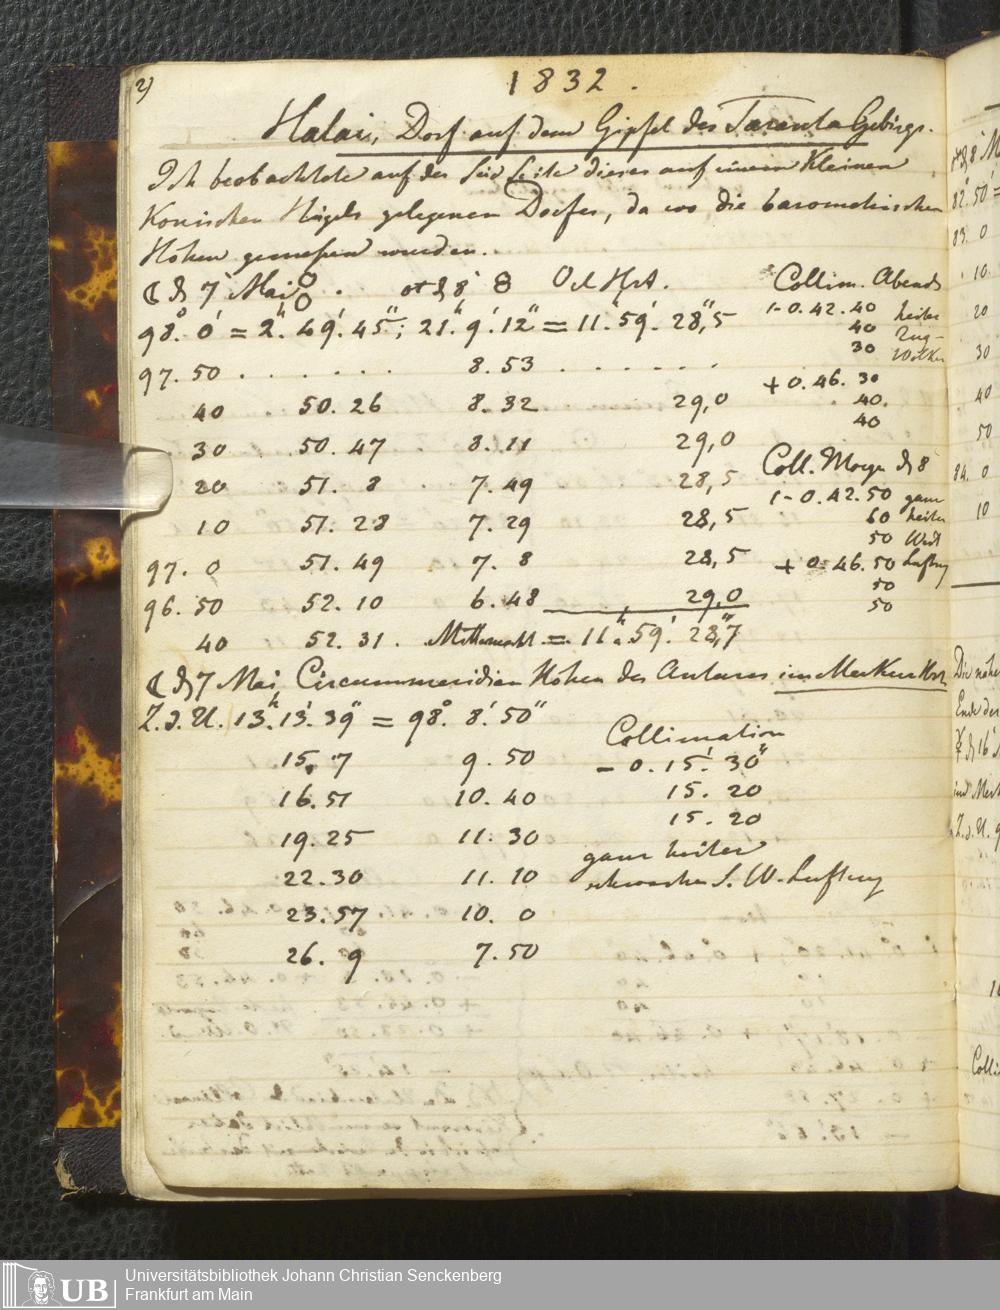 2)
1832.
Halai, Dorf auf dem Gipfel des Taranta Gebirgs.
Ich beobachtete auf der Süd Seite dieses auf einem Kleinen
Konischen Hügel gelegenen Dorfes, da wo die barometrischen
Höhen gemessen wurden.
☾ d 7 Mai ☉ . ♂ d 8 Od. Hrt.
98°. 0' = 2h. 49'. 45"; 21h. 9'. 12" = 11h. 59'. 28",5
97. 50 . . . . . . 8. 53 . . . . . .
40 50. 26 8. 32 29,0
30 50. 47 8. 11 29,0
20 51. 8 7. 49 28,5
10 51. 28 7. 29 28,5
97. 0 51. 49 7. 8 28,5
96. 50 52. 10 6. 48 29,0
40 52. 31. Mitternacht = 11h. 59'. 28",7
Collim. Abends
- 0. 42. 40 heiter
40 Zug-
30 Wolken
+ 0. 46. 30
40.
40
Coll. Morgen d 8
- 0. 42. 50 ganz
60 heiter
50 West
+ 0. 46. 50 Luftzug
50
50
☾ d 7 Mai Circummeridian Höhen des Antares im Merkur Hrt
Z. d. U. 13h. 13'. 39" = 98°. 8'. 50"
15. 7 9. 50
16. 51 10. 40
19. 25 11. 30
22. 30 11. 10
23. 57 10. 0
26. 9 7. 50
Collimation
- 0. 15'. 30"
15. 20
15. 20
ganz heiter
schwacher S. W. Luftzug
82°. 50' =
83. 0
10
20
30
40
50
84. 0
10
Ende der
Z. d. U. 9
UB
Universitätsbibliothek Johann Christian Senckenberg
Frankfurt am Main